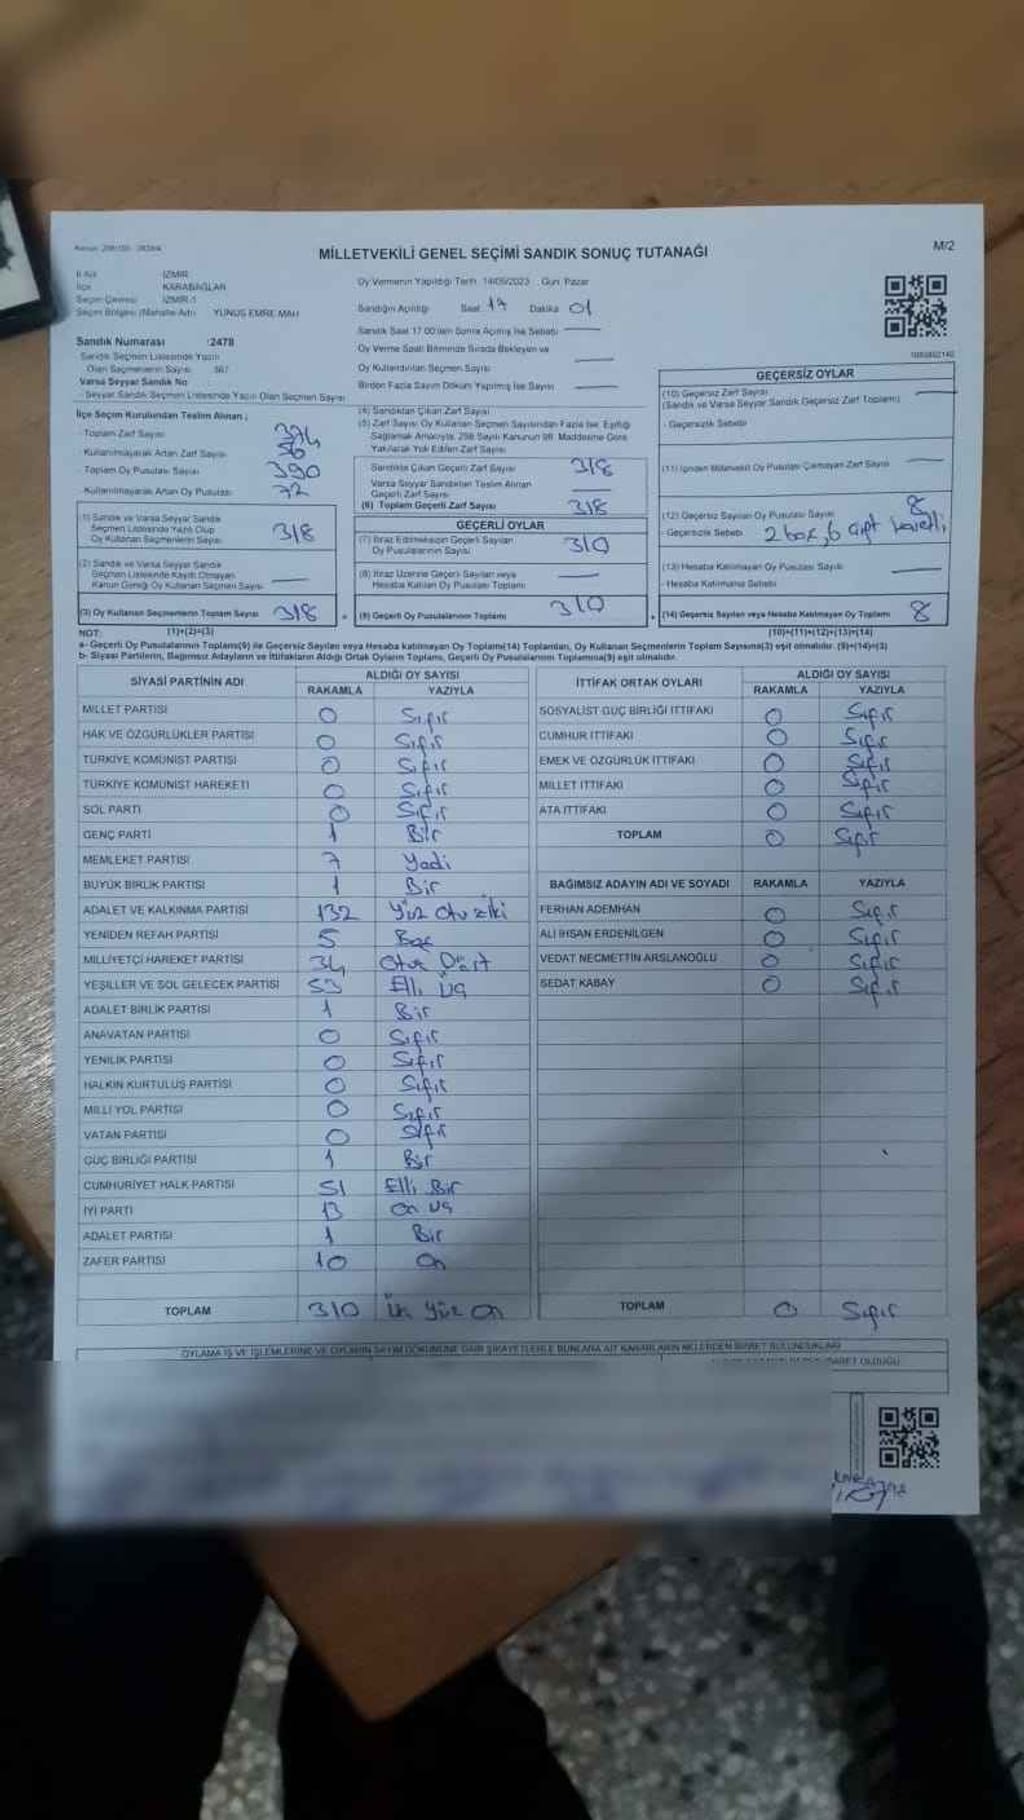 MİLLETVEKİLİ GENEL SEÇİMİ SANDIK SONUÇ TUTANAĞI
M/2
İZMİR
İlçe KARABAĞLAR
Seçim Çevresi İZMİR-1
YUNUS EMRE MAH
Sandık Numarası :2478
Sandık Seçmen Listesinde Yazılı
Olan Seçmenlerin Sayısı
Varsa Seyyar Sandık No
Seyyar Sandık Seçmen Listesinde Yazılı Olan Seçmen Sayısı
Oy Vermenin Yapıldığı Tarih 14/05/2023 Gün Pazar
Sandığın Açıldığı Saat 17 Dakika 01
Sandık Saat 17.00'den Sonra Açılmış İse Sebebi
Oy Verme Saati Bitiminde Sırada Bekleyen ve
Oy Kullandırılan Seçmen Sayısı
Birden Fazla Sayım Döküm Yapılmış İse Sayısı
İlçe Seçim Kurulundan Teslim Alınan ;
Toplam Zarf Sayısı 374
Kullanılmayarak Artan Zarf Sayısı 56
Toplam Oy Pusulası Sayısı 390
Kullanılmayarak Artan Oy Pusulası 72
(1) Sandık ve Varsa Seyyar Sandık
Seçmen Listesinde Yazılı Olup
Oy Kullanan Seçmenlerin Sayısı 318
(2) Sandık ve Varsa Seyyar Sandık
Seçmen Listesinde Kayıtlı Olmayan
Kanun Gereği Oy Kullanan Seçmen Sayısı
(3) Oy Kullanan Seçmenlerin Toplam Sayısı 318
(1)+(2)=(3)
(4) Sandıktan Çıkan Zarf Sayısı
(5) Zarf Sayısı Oy Kullanan Seçmen Sayısından Fazla İse, Eşitliği
Sağlamak Amacıyla, 298 Sayılı Kanunun 98. Maddesine Göre
Yakılarak Yok Edilen Zarf Sayısı
Sandıkta Çıkan Geçerli Zarf Sayısı 318
Varsa Seyyar Sandıktan Teslim Alınan
Geçerli Zarf Sayısı
(6) Toplam Geçerli Zarf Sayısı 318
GEÇERLİ OYLAR
(7) İtiraz Edilmeksizin Geçerli Sayılan
Oy Pusulalarının Sayısı 310
(8) İtiraz Üzerine Geçerli Sayılan veya
Hesaba Katılan Oy Pusulası Toplamı
(9) Geçerli Oy Pusulalarının Toplamı 310
GEÇERSİZ OYLAR
(10) Geçersiz Zarf Sayısı
(Sandık ve Varsa Seyyar Sandık Geçersiz Zarf Toplamı)
- Geçersizlik Sebebi
(11) İçinden Milletvekili Oy Pusulası Çıkmayan Zarf Sayısı
(12) Geçersiz Sayılan Oy Pusulası Sayısı 8
- Geçersizlik Sebebi 2 boş, 6 çift
(13) Hesaba Katılmayan Oy Pusulası Sayısı
- Hesaba Katılmama Sebebi
(14) Geçersiz Sayılan veya Hesaba Katılmayan Oy Toplamı 8
(10)+(11)+(12)+(13)=(14)
NOT:
a- Geçerli Oy Pusulalarının Toplamı(9) ile Geçersiz Sayılan veya Hesaba katılmayan Oy Toplamı(14) Toplamları, Oy Kullanan Seçmenlerin Toplam Sayısına(3) eşit olmalıdır. (9)+(14)=(3)
b- Siyasi Partilerin, Bağımsız Adayların ve İttifakların Aldığı Ortak Oyların Toplamı, Geçerli Oy Pusulalarının Toplamına(9) eşit olmalıdır.
SİYASİ PARTİNİN ADI ALDIĞI OY SAYISI
RAKAMLA YAZIYLA
MİLLET PARTİSİ 0 Sıfır
HAK VE ÖZGÜRLÜKLER PARTİSİ 0 Sıfır
TÜRKİYE KOMÜNİST PARTİSİ 0 Sıfır
TÜRKİYE KOMÜNİST HAREKETİ 0 Sıfır
SOL PARTİ 0 Sıfır
GENÇ PARTİ 1 Bir
MEMLEKET PARTİSİ 7 Yadi
BÜYÜK BİRLİK PARTİSİ 1 Bir
ADALET VE KALKINMA PARTİSİ 132 Yüz Otuz iki
YENİDEN REFAH PARTİSİ 5 Beş
MİLLİYETÇİ HAREKET PARTİSİ 34 Otuz Dört
YEŞİLLER VE SOL GELECEK PARTİSİ 53 Elli Üç
ADALET BİRLİK PARTİSİ 1 Bir
ANAVATAN PARTİSİ 0 Sıfır
YENİLİK PARTİSİ 0 Sıfır
HALKIN KURTULUŞ PARTİSİ 0 Sıfır
MİLLİ YOL PARTİSİ 0 Sıfır
VATAN PARTİSİ 0 Sıfır
GÜÇ BİRLİĞİ PARTİSİ 1 Bir
CUMHURİYET HALK PARTİSİ 51 Elli Bir
İYİ PARTİ 13 On Üç
ADALET PARTİSİ 1 Bir
ZAFER PARTİSİ 10 On
TOPLAM 310 Üç Yüz On
İTTİFAK ORTAK OYLARI ALDIĞI OY SAYISI
RAKAMLA YAZIYLA
SOSYALİST GÜÇ BİRLİĞİ İTTİFAKI 0 Sıfır
CUMHUR İTTİFAKI 0 Sıfır
EMEK VE ÖZGÜRLÜK İTTİFAKI 0 Sıfır
MİLLET İTTİFAKI 0 Sıfır
ATA İTTİFAKI 0 Sıfır
TOPLAM 0 Sıfır
BAĞIMSIZ ADAYIN ADI VE SOYADI RAKAMLA YAZIYLA
FERHAN ADEMHAN 0 Sıfır
ALİ İHSAN ERDENİLGEN 0 Sıfır
VEDAT NECMETTİN ARSLANOĞLU 0 Sıfır
SEDAT KABAY 0 Sıfır
TOPLAM 0 Sıfır